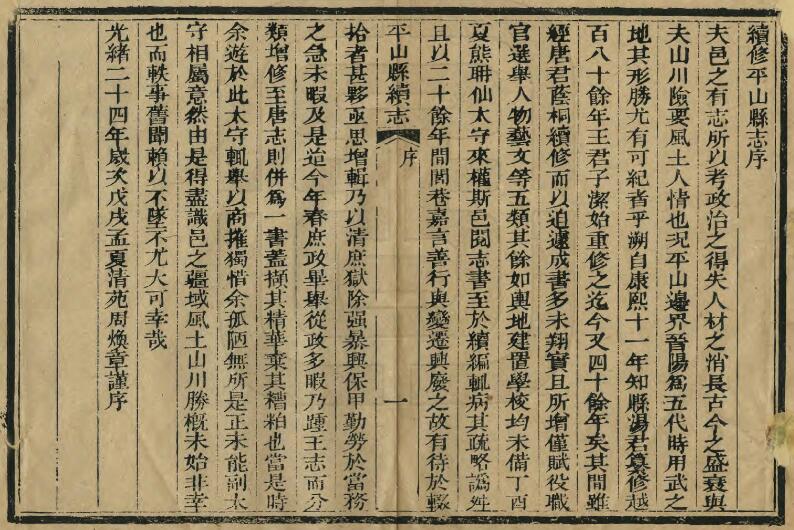 續修平山縣志序
夫邑之有志所以考政治之得失人材之消長古今之盛衰與
夫山川險要風土人情也況平山邊界晉陽爲五代時用武之
地其形勝尤有可紀者乎溯自康熙十一年知縣湯君纂修越
百八十餘年王君子潔始重修之迄今又四十餘年矣其間雖
經唐君蔭桐續修而以迫遽成書多未翔實且所增僅賦役職
官選舉人物藝文等五類其餘如輿地建置學校均未備丁酉
夏熊珊仙太守來權斯邑閱志書至於續編輒病其疏略譌舛
且以二十餘年間閭巷嘉言善行與變遷興廢之故有待於輟
平山縣續志
序
一
拾者甚夥亟思增輯乃以清庶獄除强暴興保甲勤勞於當務
之急未暇及是迨今年春庶政畢舉從政多暇乃踵王志而分
類增修至唐志則併爲一書蓋擷其精華棄其糟粕也當是時
余遊於此太守輒舉以商搉獨惜余孤陋無所是正未能副太
守相屬意然由是得盡識邑之疆域風土山川勝概未始非幸
也而軼事舊聞賴以不墜不尤大可幸哉
光緒二十四年歲次戊戌孟夏清苑周煥章謹序